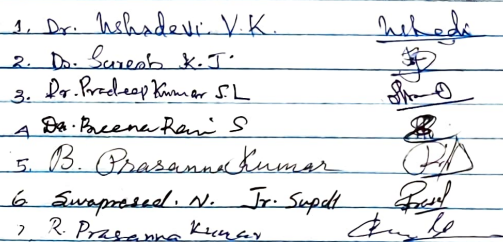 1. Dr. Ushadevi. V.K.
2. Dr. Suresh K.J.
3. Dr. Pradeep Kumar S L
4 Dr. Beena Rani S
5. B. Prasanna Kumar
6 Sivaprasad. N. Jr. Supdt
7 R. Prasanna Kumar